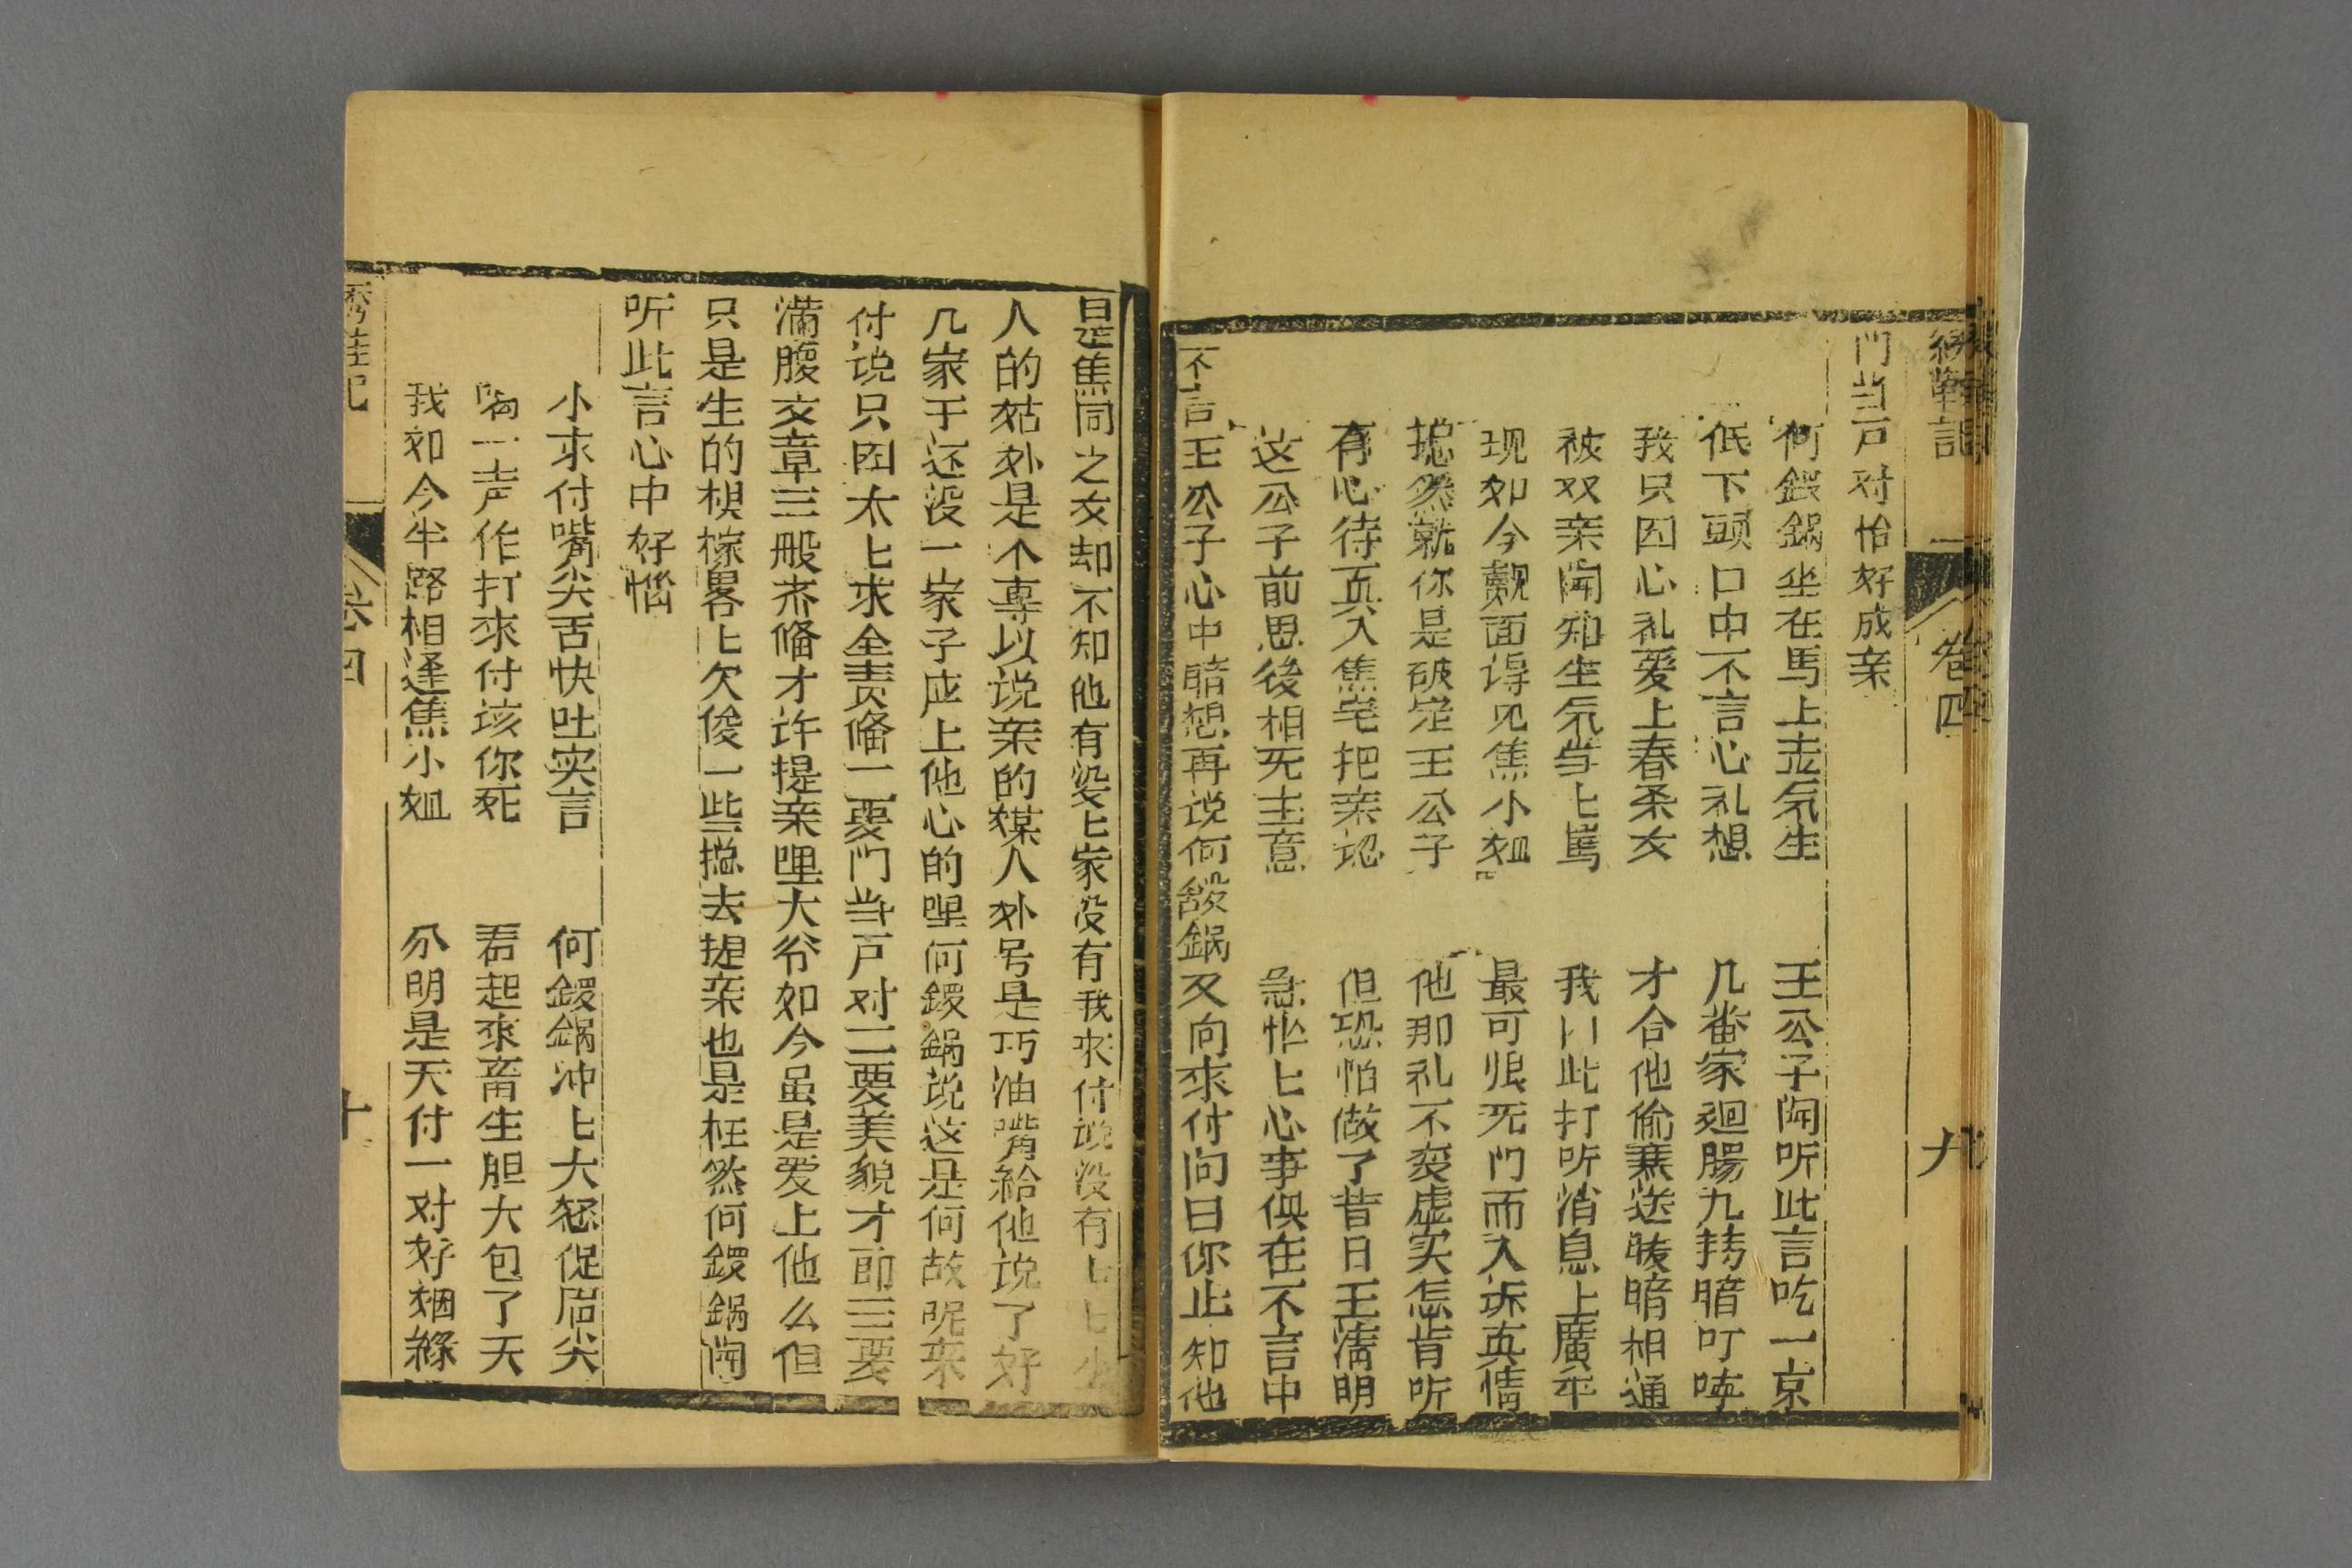 綉鞋記 卷四 九
门当户对恰好成亲
何鍰鍋坐在馬上去気生 王公子闻听此言吃一京
低下頭口中不言心礼想 几番家廻腸九转暗叮咛
我只因心礼爱上春柔女 才合他偷寒送暖暗相通
被双亲闻知生気当上罵 我囗此打听消息上廣平
现如今觌面得见焦小姐 最可恨死门而入诉真情
搃然就你是破定王公子 他那礼不奕虚实怎肯听
有心待真入焦宅把亲认 但恐怕做了昔日王淸明
这公子前思後相死主意 急忙上心事俱在不言中
不言王公子心中暗想再说何鍰鍋又向来付问曰你止知他
是焦同之女却不知他有婆上家没有我来付说没有上上少
人的姑外是个專以说亲的媒人外号是巧油嘴給他说了好
几家于还没一家子应上他心的哩何鍰鍋说这是何故呢来
付说只因太上求全责俻一要门当户对二要美貌才郎三要
满腹文章三般齐俻才许提亲哩大爷如今虽是爱上他么但
只是生的模樣畧上欠俊一些搃去提亲也是枉然何鍰鍋闻
听此言心中好惱
小来付嘴尖舌快吐实言 何鍰鍋冲上大怒促眉尖
啕一声作打來付该你死 看起來畜生胆大包了天
我如今半路相逢焦小姐 分明是天付一对好姻緣
綉鞋记 卷四 十